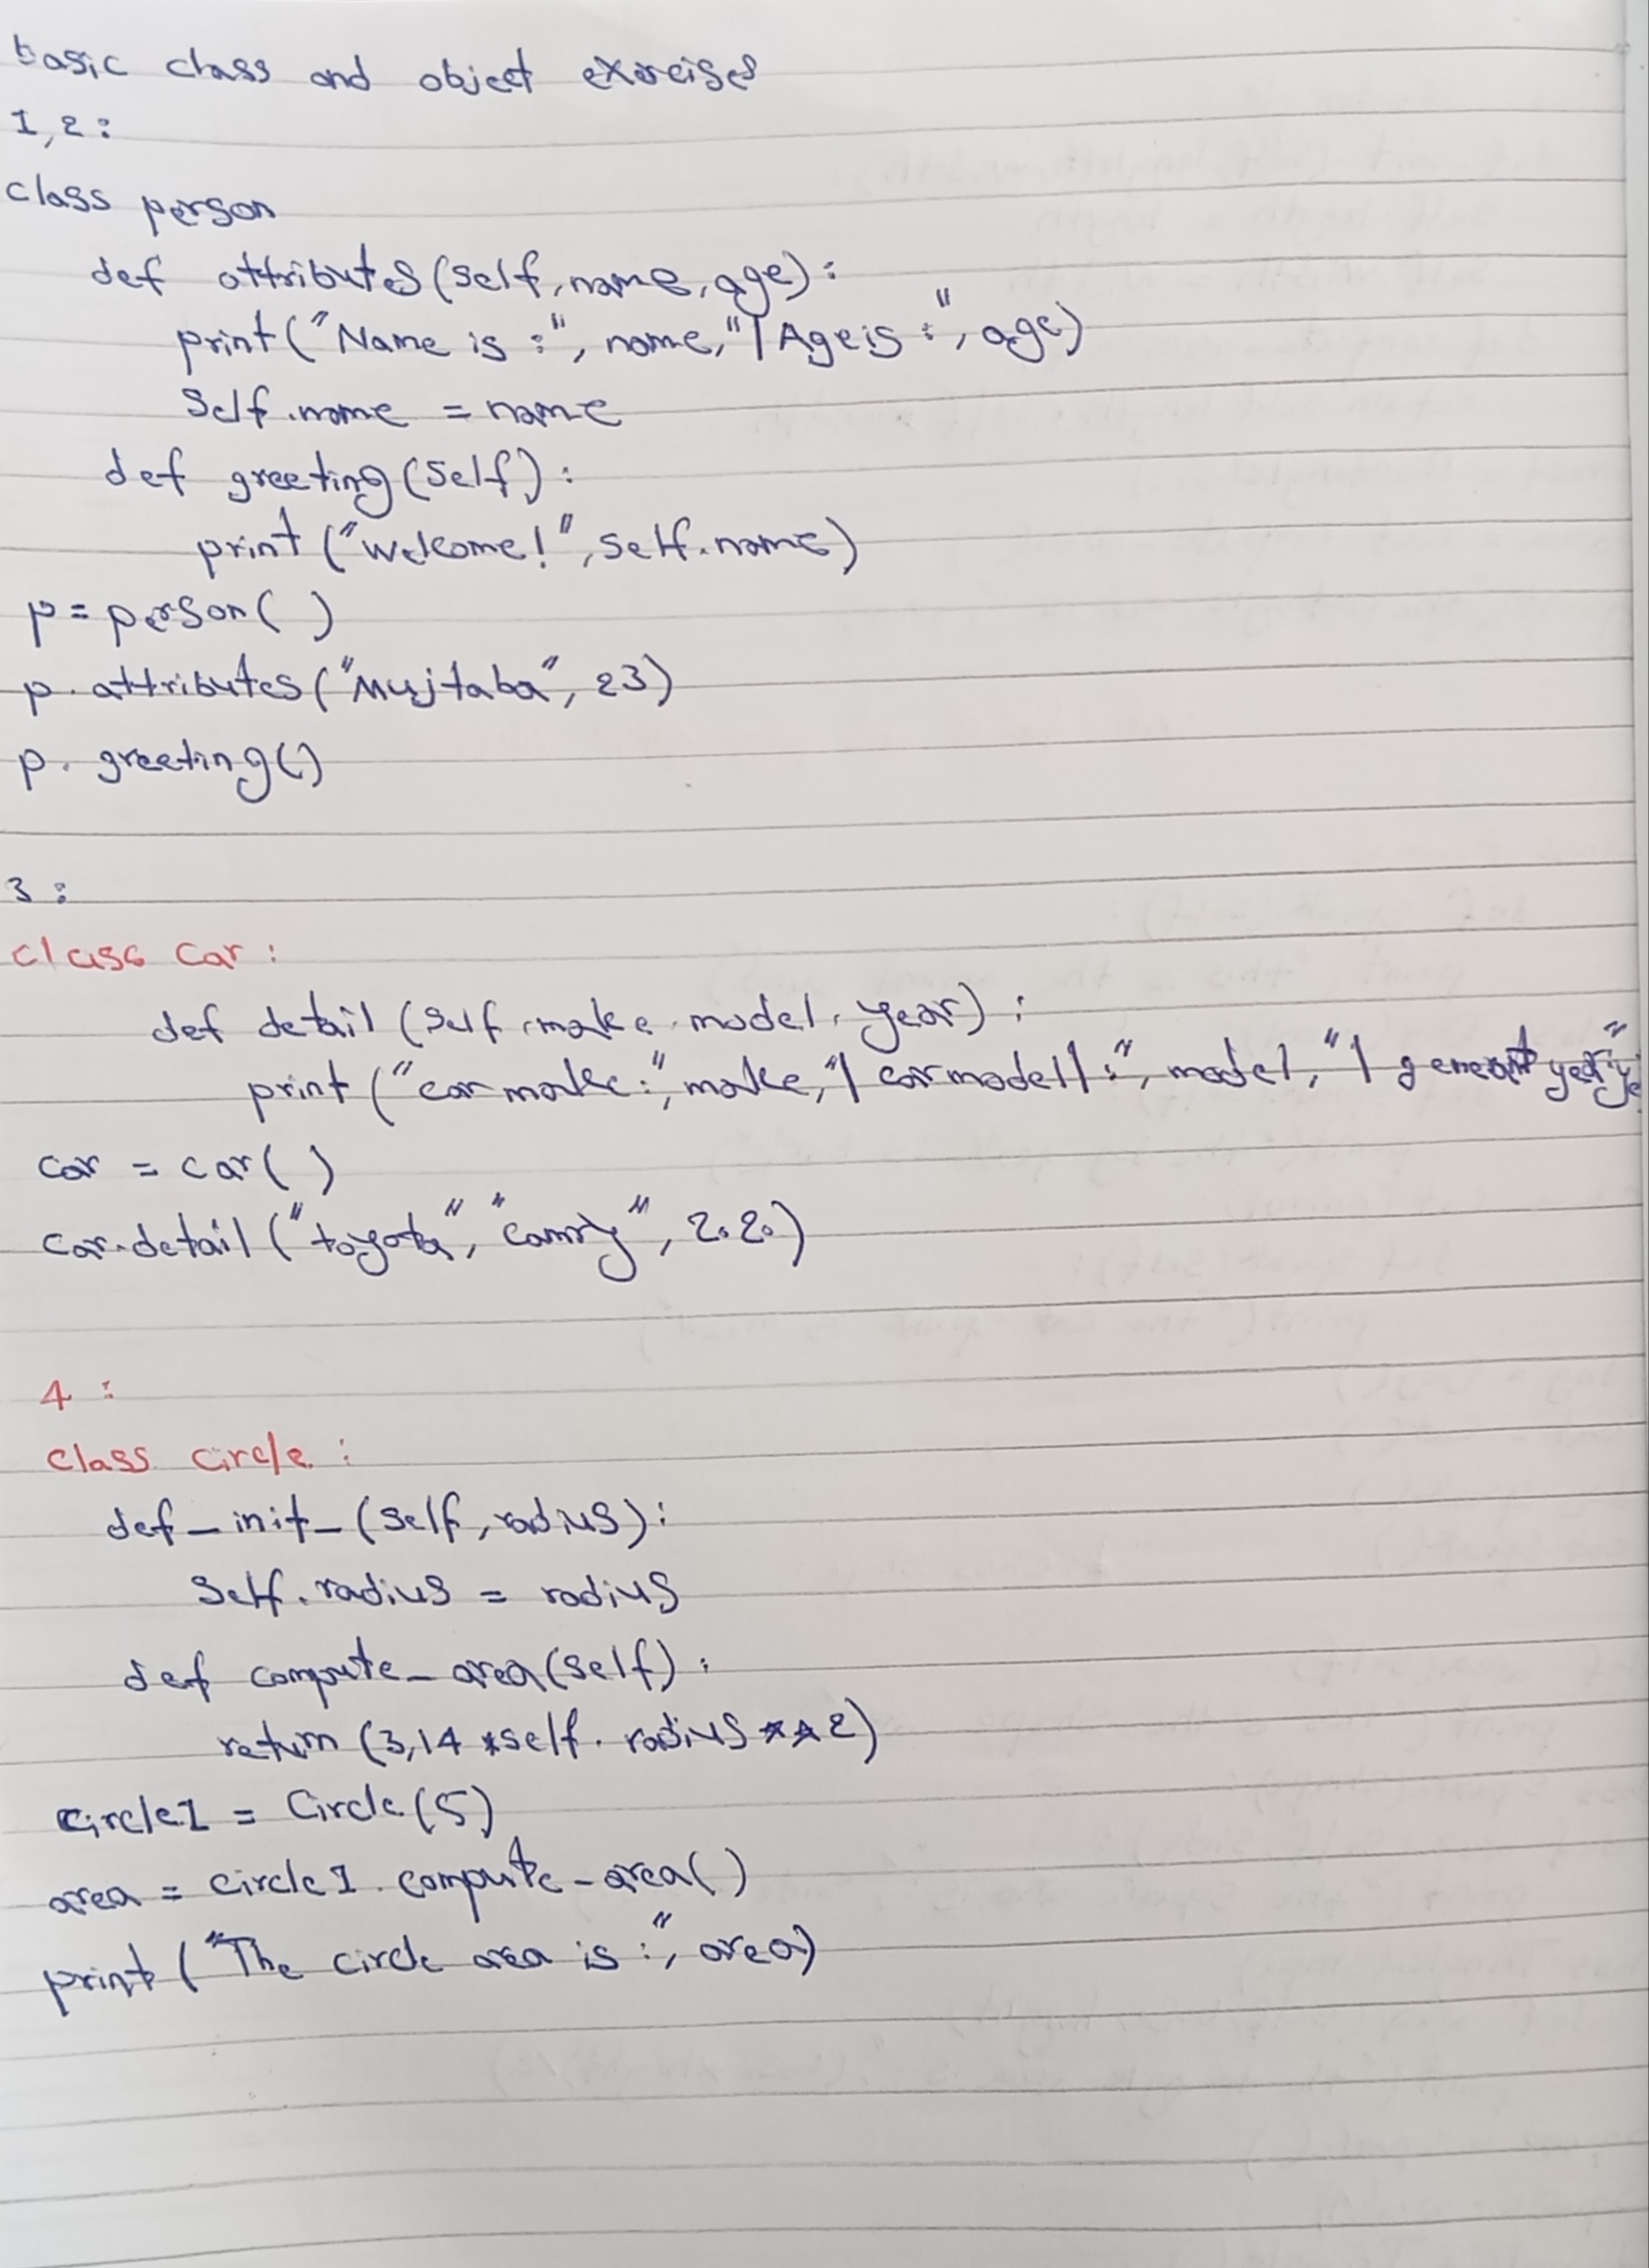 basic class and object exercises
1,2:
class person
def attributes(self,name,age):
print("Name is :", name,"|Age is :", age)
self.name = name
def greeting(self):
print("welcome!",self.name)
p=person()
p.attributes("Mujtaba",23)
p.greeting()
3:
class Car:
def detail(self,make,model,year):
print("car make:",make,"| car modell:",model,"|
car = car()
car.detail("toyota","camry",2020)
4:
class Circle:
def_init_(self,radius):
self.radius = radius
def compute_area(self):
return (3,14*self.radius**2)
circle1 = Circle(5)
area = circle1.compute_area()
print("The circle area is:",area)